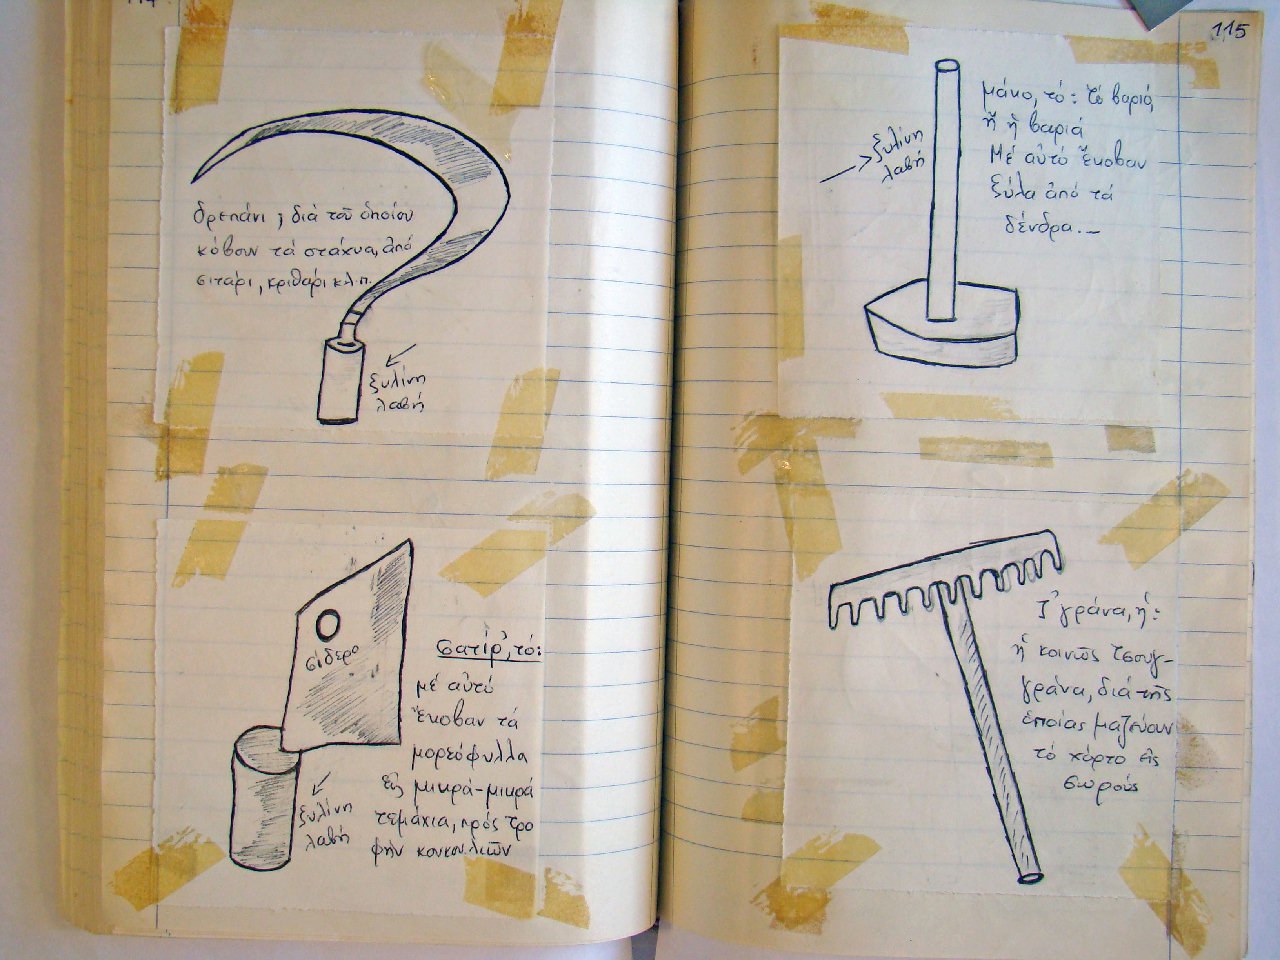 δρεπάνι, διὰ τοῦ ὁποίου
κόβουν τὰ στάχυα, ἀπό
σιτάρι, κριθάρι κλ.π.
ξυλίνη
λαβή
σίδερο
σατίρ', τό:
μέ αὐτό
ἔκοβαν τά
μορεόφυλλα
εἰς μικρά-μικρά
τεμάχια, πρός τρο
φήν κουκουλιῶν
ξυλίνη
λαβή
115
μάκο, τό: τό βαριό,
ἤ ἡ βαριά
Μέ αὐτό ἔκοβαν
ξύλα ἀπό τά
δένδρα.-
ξυλίνη
λαβή
Τσ'γράνα, ἡ:
ἡ κοινῶς τσουγ-
γράνα, διά τῆς
ὁποίας μαζεύουν
τό χόρτο εἰς
σωρούς